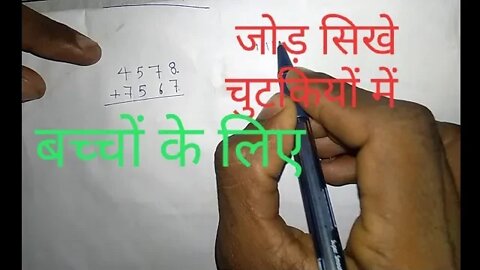 जोड़ सिखे
चुटकियों में
4578
+7567
बच्चों के लिए